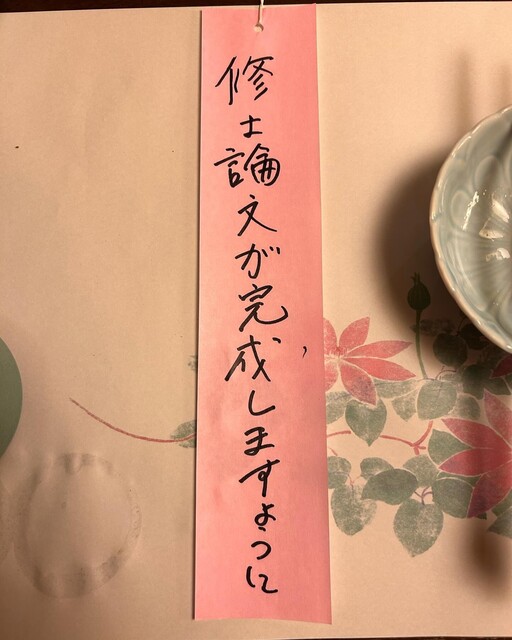 修士論文が完成しますように